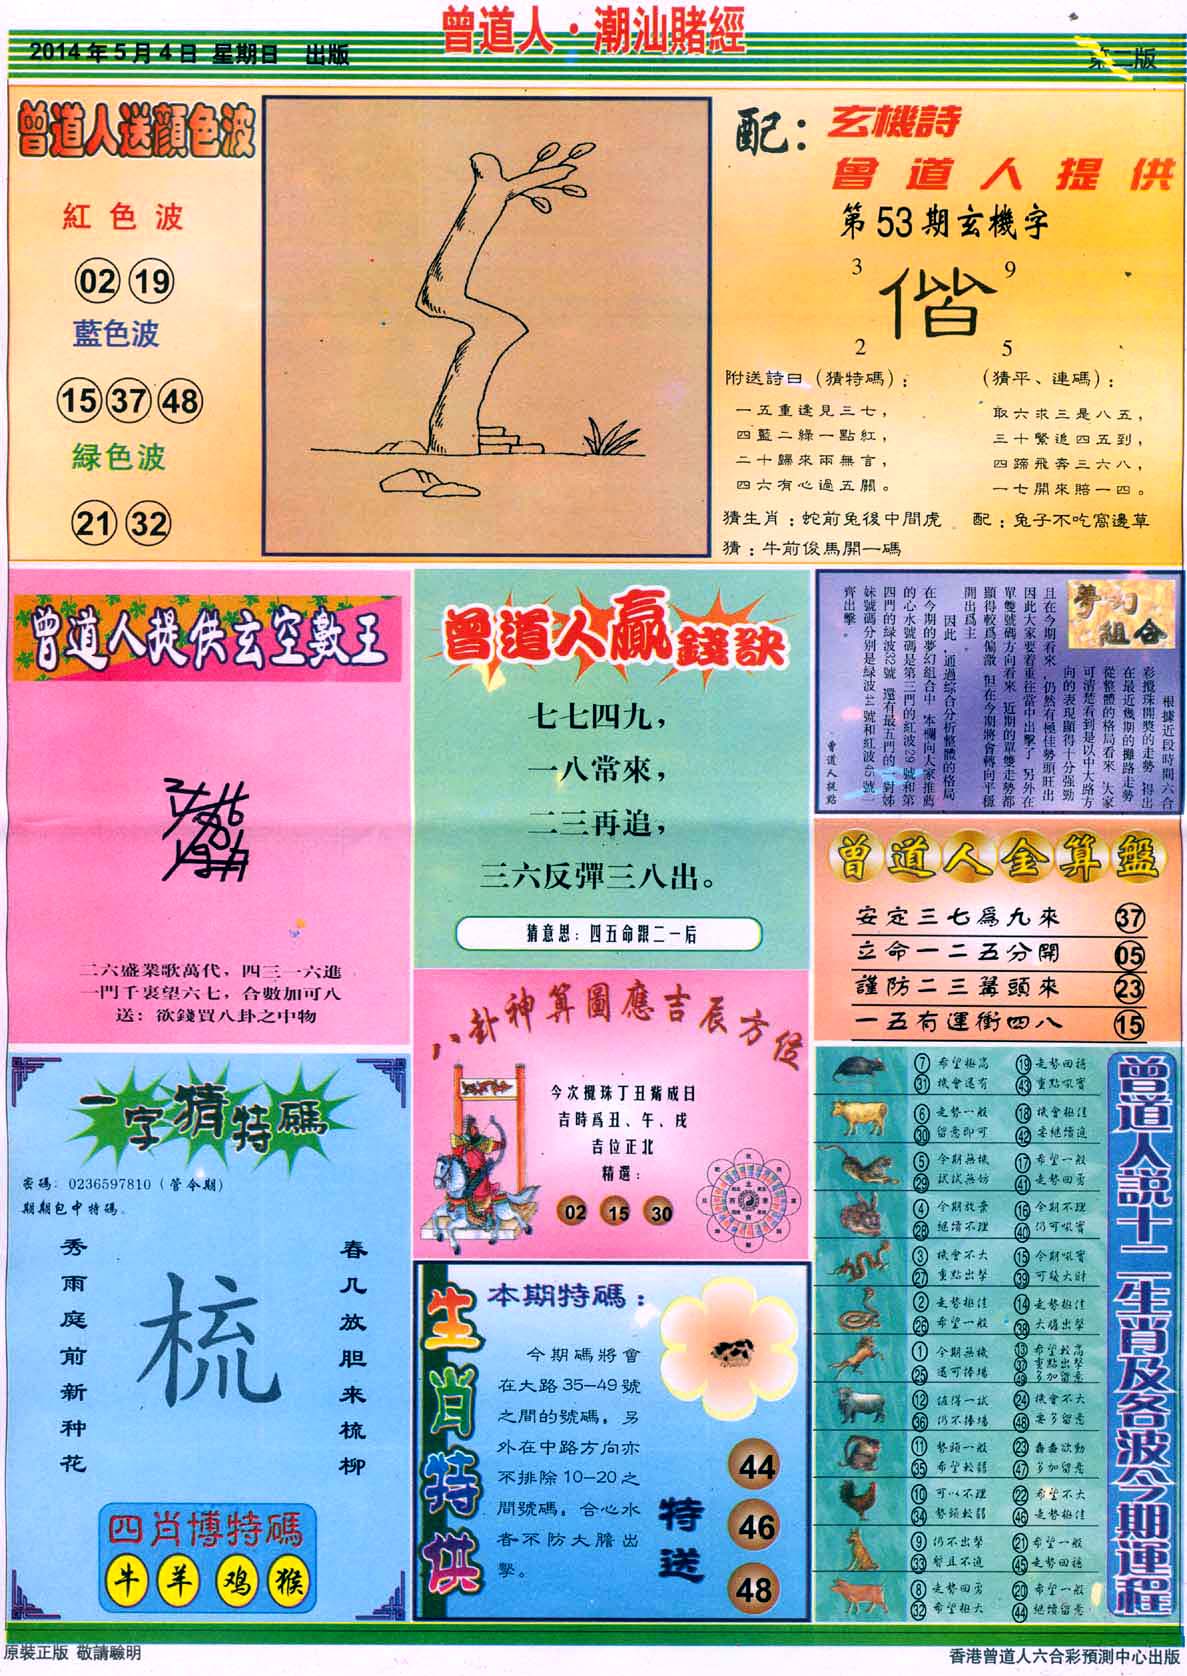 曾道人·潮汕賭經
2014年5月4日 星期日 出版
第二版
曾道人送顔色波
紅色波
02 19
藍色波
15 37 48
緑色波
21 32
配：
玄機詩
曾道人提供
第53期玄機字
3 9
偕
2 5
附送詩曰（猜特碼）：
一五重逢見三七，
四藍二綠一點紅，
二十歸來兩無言，
四六有心過五關。
（猜平、連碼）：
取六求三是八五，
三十緊追四五到，
四蹄飛奔三六八，
一七開來賠一四。
猜生肖：蛇前兔後中間虎 配：兔子不吃窩邊草
猜：牛前俊馬開一碼
曾道人提供玄空數王
二六盛業歌萬代，四三一六進
一門千裏望六七，合數加可八
送：欲錢買八卦之中物
曾道人贏錢訣
七七四九，
一八常來，
二三再追，
三六反彈三八出。
猜意思：四五命跟二一后
夢幻組合
根據近段時間六合
彩攪珠開獎的走勢，得出
在最近幾期的攤路走勢
從整體的格局看來，大家
可清楚看到是以中大路方
向的表現顯得十分强勁
且在今期看來，仍然有極佳勢頭旺出
因此大家要着重往當中出擊了，另外在
單雙號碼方向看來，近期的單雙走勢都
顯得較爲偏激，但在今期將會轉向平穩
開出爲主。
因此，通過綜合分析整體的格局
在今期的夢幻組合中，本欄向大家推薦
的心水號碼是第三門的紅波29號和第
四門的緑波32號，還有最五門的一對姊
妹號碼分别是緑波44號和紅波45號一
齊出擊。
曾道人提點
曾道人金算盤
安定三七爲九來 37
立命一二五分開 05
謹防二三萬頭來 23
一五有運衝四八 15
八卦神算圖應吉辰方位
今次攪珠丁丑觜成日
吉時爲丑、午、戌
吉位正北
精選：
02 15 30
一字猜特碼
密碼：0236597810（管令期）
期期包中特碼。
秀雨庭前新种花
梳
春几放胆来梳柳
四肖博特碼
牛 羊 鸡 猴
生肖特供
本期特碼：
今期碼將會
在大路35—49號
之間的號碼，另
外在中路方向亦
不排除10—20之
間號碼，合心水
者不防大膽出
擊。
特送
44
46
48
曾道人説十二生肖及各波今期運程
7 希望極高 19 走勢回穩
31 機會還有 43 重點吼實
6 走勢一般 18 機會極佳
30 留意即可 42 要繼續追
5 今期無機 17 希望一般
29 試試無妨 41 走勢回勇
4 今期放棄 16 今期不理
28 繼續不理 40 仍可吼實
3 機會不大 15 今期吼實
27 重點出擊 39 可發大財
2 走勢極佳 14 走勢極佳
26 希望一般 38 大膽出擊
1 今期無機 13 希望較高
25 還可捧場 37 重點出擊
49 多加留意
12 值得一試 24 機會不大
36 仍不捧場 48 要多留意
11 勢頭一般 23 轟轟欲動
35 希望較弱 47 多加留意
10 可以不理 22 希望不大
34 勢頭較弱 46 走勢極佳
9 仍不出擊 21 希望一般
33 暫且不追 45 走勢回穩
8 走勢回勇 20 希望一般
32 希望極大 44 繼續留意
原裝正版 敬請驗明
香港曾道人六合彩預測中心出版